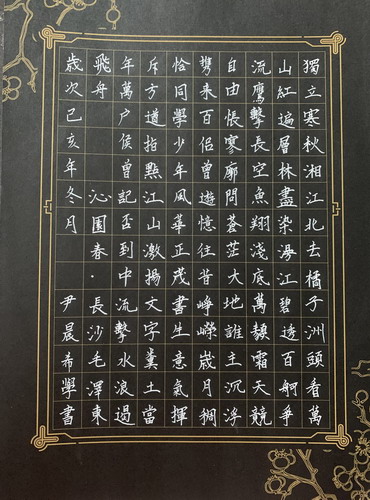 獨立寒秋湘江北去橘子洲頭看萬
山紅遍層林盡染漫江碧透百舸爭
流鷹擊長空魚翔淺底萬類霜天競
自由悵寥廓問蒼茫大地誰主沉浮
攜來百侣曾遊憶往昔崢嶸歲月稠
恰同學少年風華正茂書生意氣揮
斥方遒指點江山激揚文字糞土當
年萬户侯曾記否到中流擊水浪遏
飛舟 沁園春·長沙毛澤東
歲次己亥年冬月 尹晨希學書